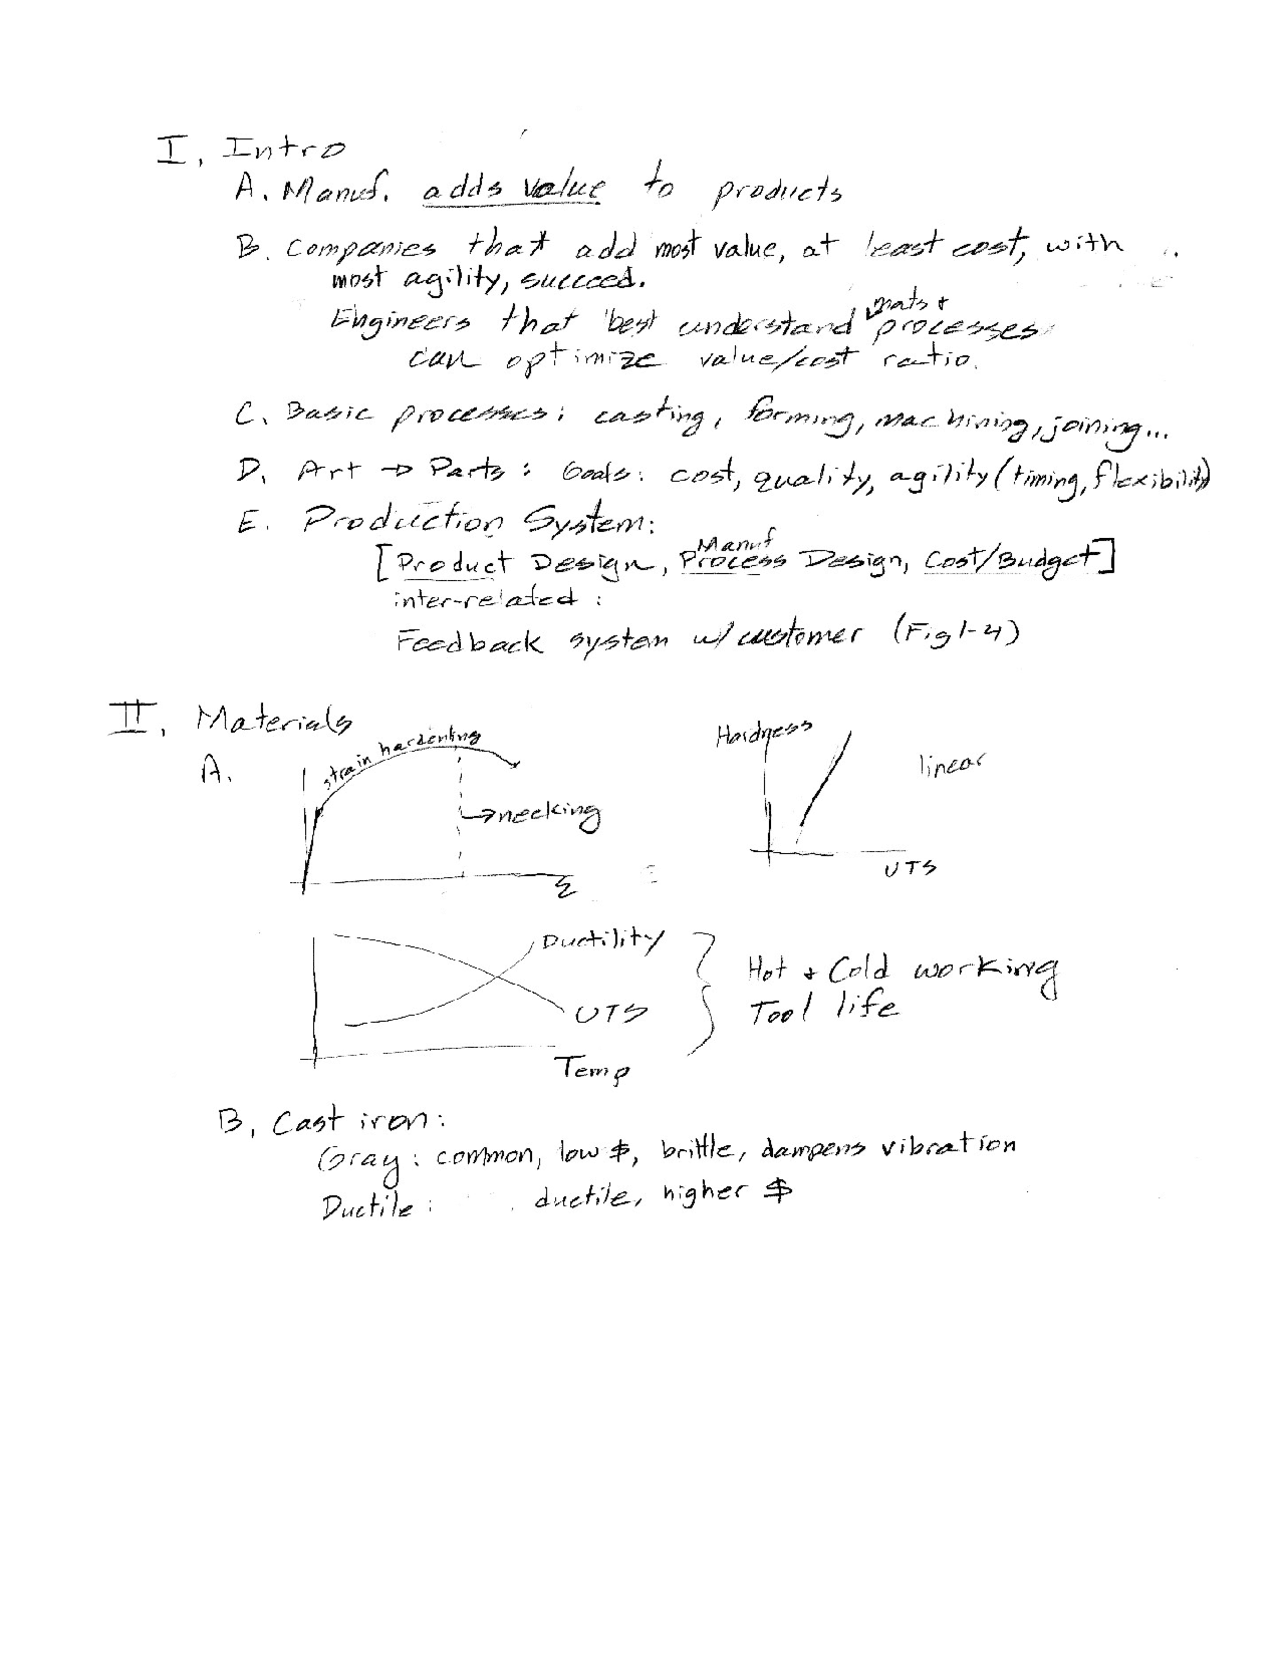 I. Intro
A. Manuf. adds value to products
B. Companies that add most value, at least cost, with
most agility, succeed.
mats +
Engineers that best understand processes
can optimize value/cost ratio.
C. Basic processes: casting, forming, machining, joining...
D. Art → Parts: Goals: cost, quality, agility (timing, flexibility)
E. Production System:
Manuf
[Product Design, Process Design, Cost/Budget]
inter-related:
Feedback system w/ customer (Fig 1-4)
II. Materials
A.
strain hardening
necking
ε
Hardness
linear
UTS
Ductility
UTS
Temp
Hot + Cold working
Tool life
B. Cast iron:
Gray: common, low $, brittle, dampens vibration
Ductile: ductile, higher $